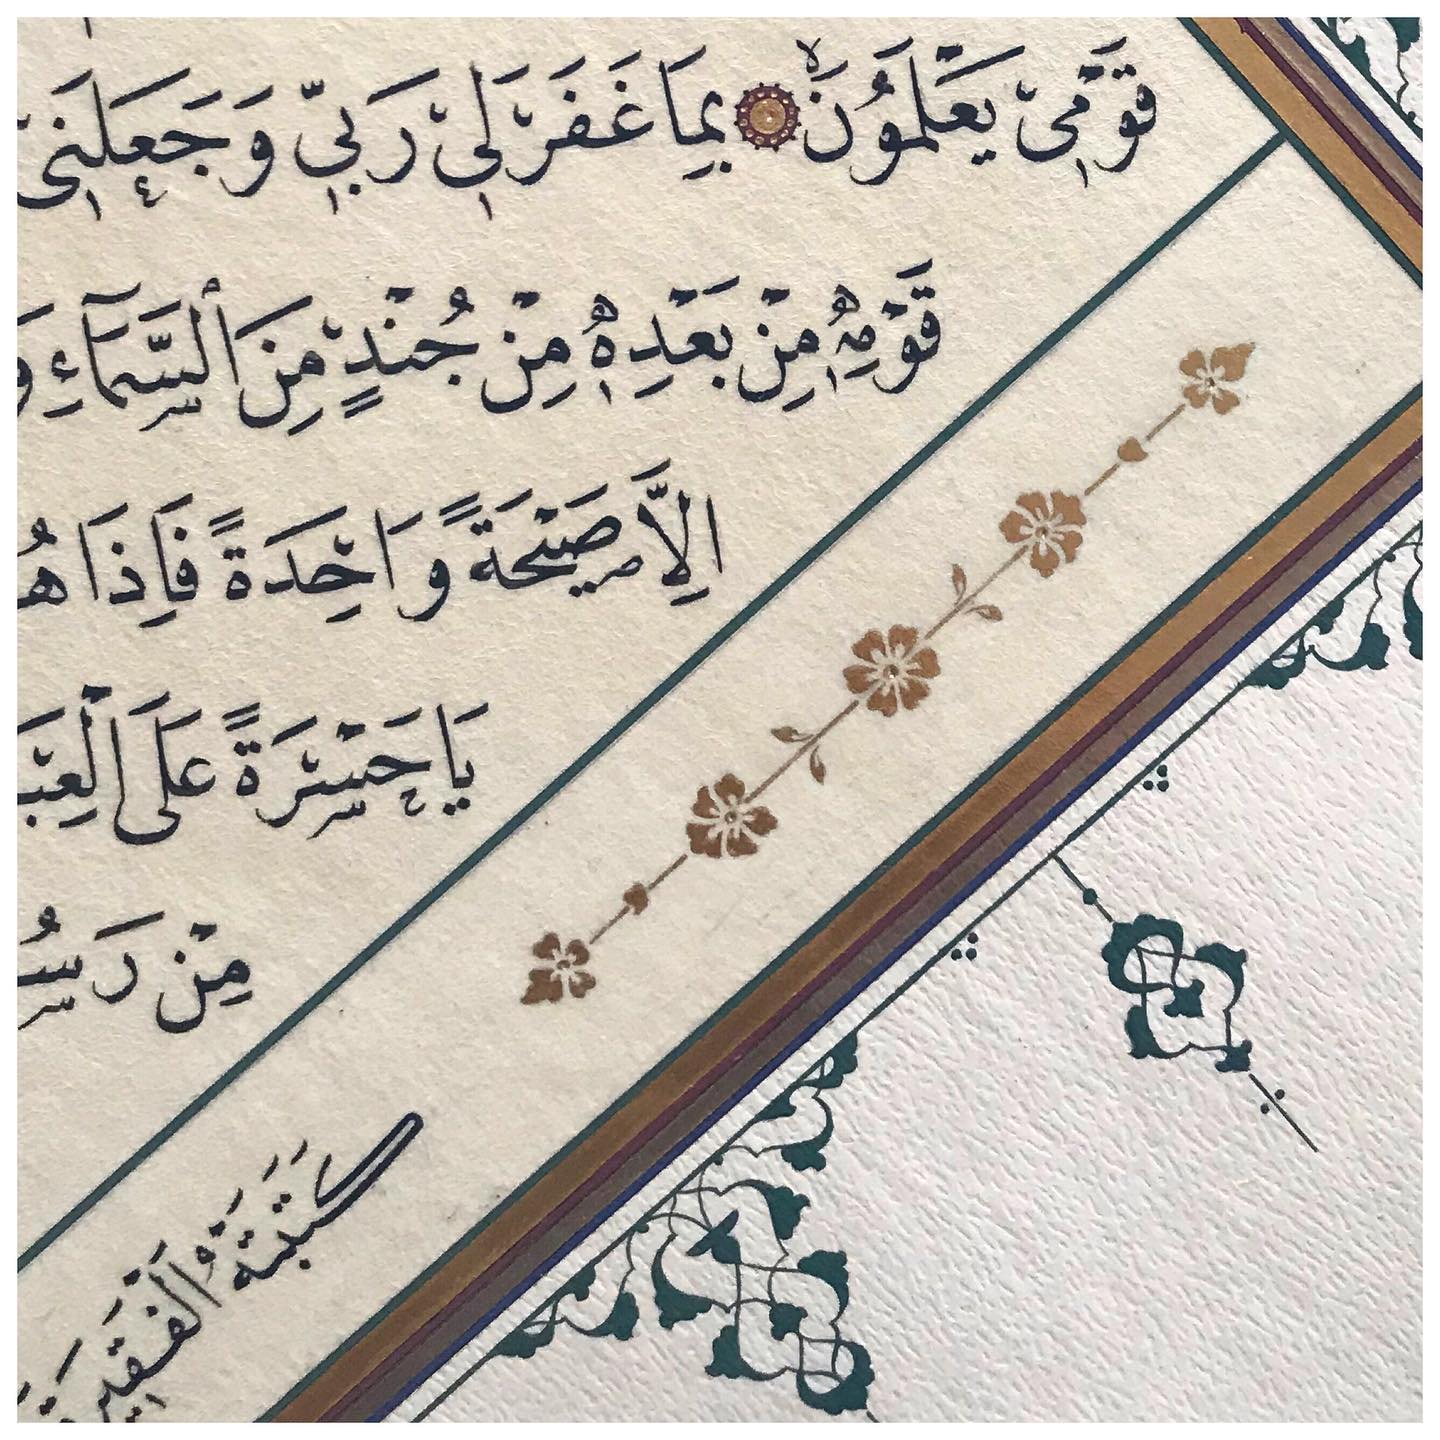 قَوْمِي يَعْلَمُونَ بِمَا غَفَرَ لِي رَبِّي وَجَعَلَنِي
قَوْمِهِ مِنْ بَعْدِهِ مِنْ جُنْدٍ مِنَ السَّمَآءِ وَ
اِلَّا صَيْحَةً وَاحِدَةً فَاِذَا هُ
يَا حَسْرَةً عَلَى الْعِبَ
مِنْ رَسُ
كَتَبَهُ الْفَقِير